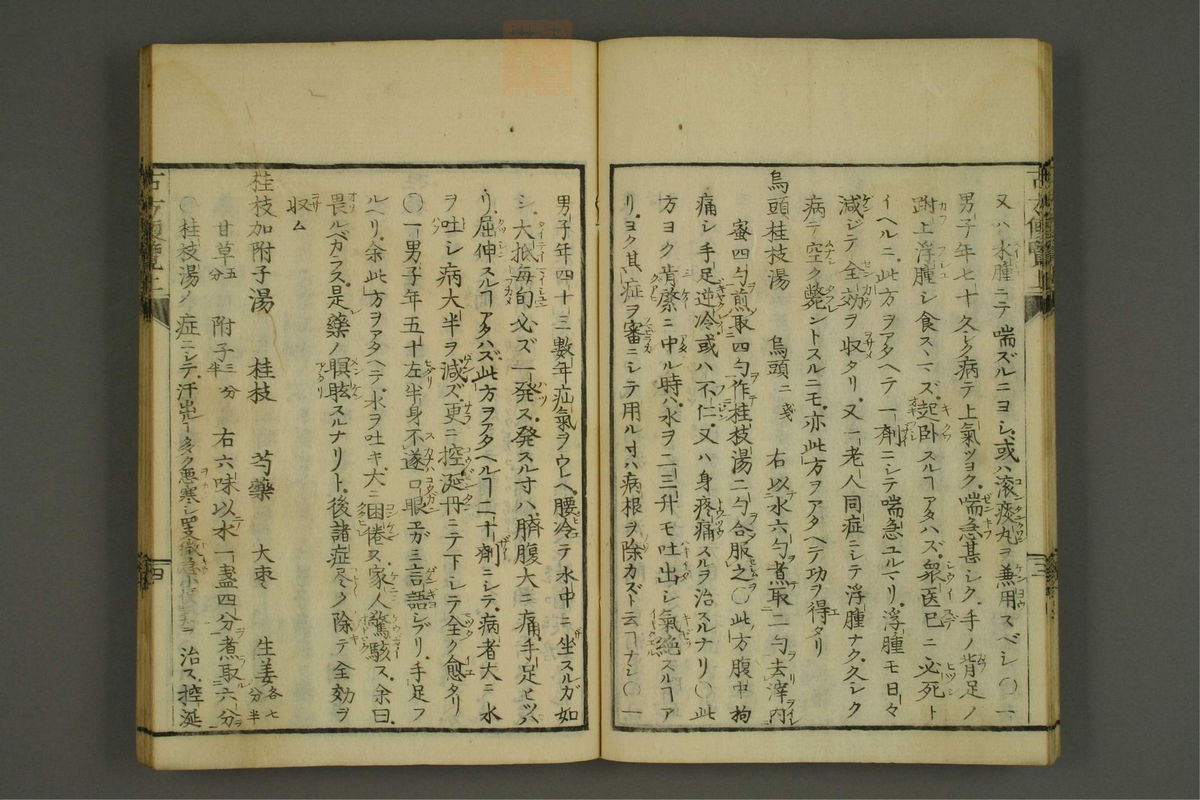 又ハ水腫ニテ喘ズルニヨシ、或ハ滚痰丸ヲ兼用スベシ〇一
男子年七十久シク病テ上氣ツヨク喘急甚シク、手ノ背足ノ
跗上浮腫シ食スヽマズ、起卧スルヿアタハズ、衆医已ニ必死ト
イヘルニ、此方ヲアタヘテ一劑ニシテ喘急ユルマリ、浮腫モ日々
減ジテ全効ヲ収タリ、又一老人同症ニシテ浮腫ナク、久シク
病テ空ク斃ントスルニモ、亦此方ヲアタヘテ功ヲ得タリ
烏頭桂枝湯 烏頭二戔 右以水六勺煮取二勺去滓内
蜜四勺煎取四勺作桂枝湯二勺合服之〇此方腹中拘
痛シ手足逆冷或ハ不仁、又ハ身疼痛スルヲ治スルナリ〇此
方ヨク肯綮ニ中ル時ハ、水ヲ二三升モ吐出シ氣絶スルヿア
リ、ヨク其症ヲ審ニシテ用ル寸ハ病根ヲ除カズト云ヿナシ〇一
三
男子年四十三數年疝氣ヲウレヘ、腰冷テ水中ニ坐スルガ如
シ、大抵毎旬必ズ一発ス、発スル寸ハ、臍腹大ニ痛手足ヒッハ
リ、屈伸スルヿアタハズ、此方ヲアタヘルヿ二十劑ニシテ、病者大ニ水
ヲ吐シ病大半ヲ減ズ、更ニ控涎丹ニテ下シテ全ク愈タリ
〇一男子年五十左半身不遂口眼㖞ガミ言語シブリ、手足フ
ルヘリ、余此方ヲアタヘテ、水ヲ吐キ、大ニ困倦ス、家人驚駭ス、余曰、
畏ルベカラス、是藥ノ瞑眩スルナリト、後諸症尽ク除テ全効ヲ
収ム
桂枝加附子湯 桂枝 芍藥 大棗 生姜各七分半
甘草五分 附子三分半 右六味以水一盞四分煮取六分
〇桂枝湯ノ症ニシテ、汗出ルヿ多ク悪寒シ四支微急小便難ヲ治ス、控涎
四